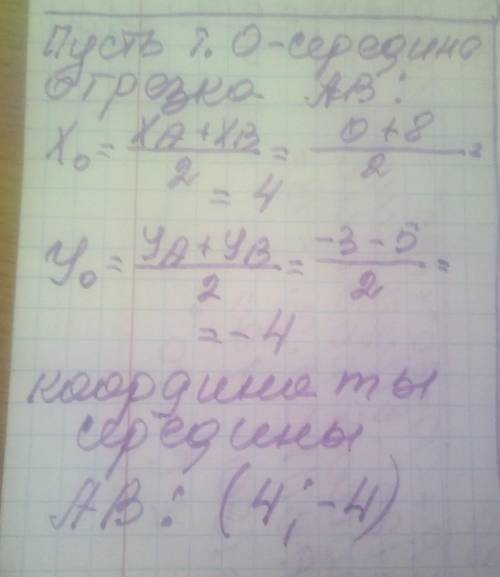 Пусть т. О-середина
отрезка AB:
X₀ = (XA + XB)/2 = (0 + 8)/2 =
= 4
У₀ = (УA + УB)/2 = (-3 - 5)/2 =
= -4
координаты
середины
AB: (4; -4)